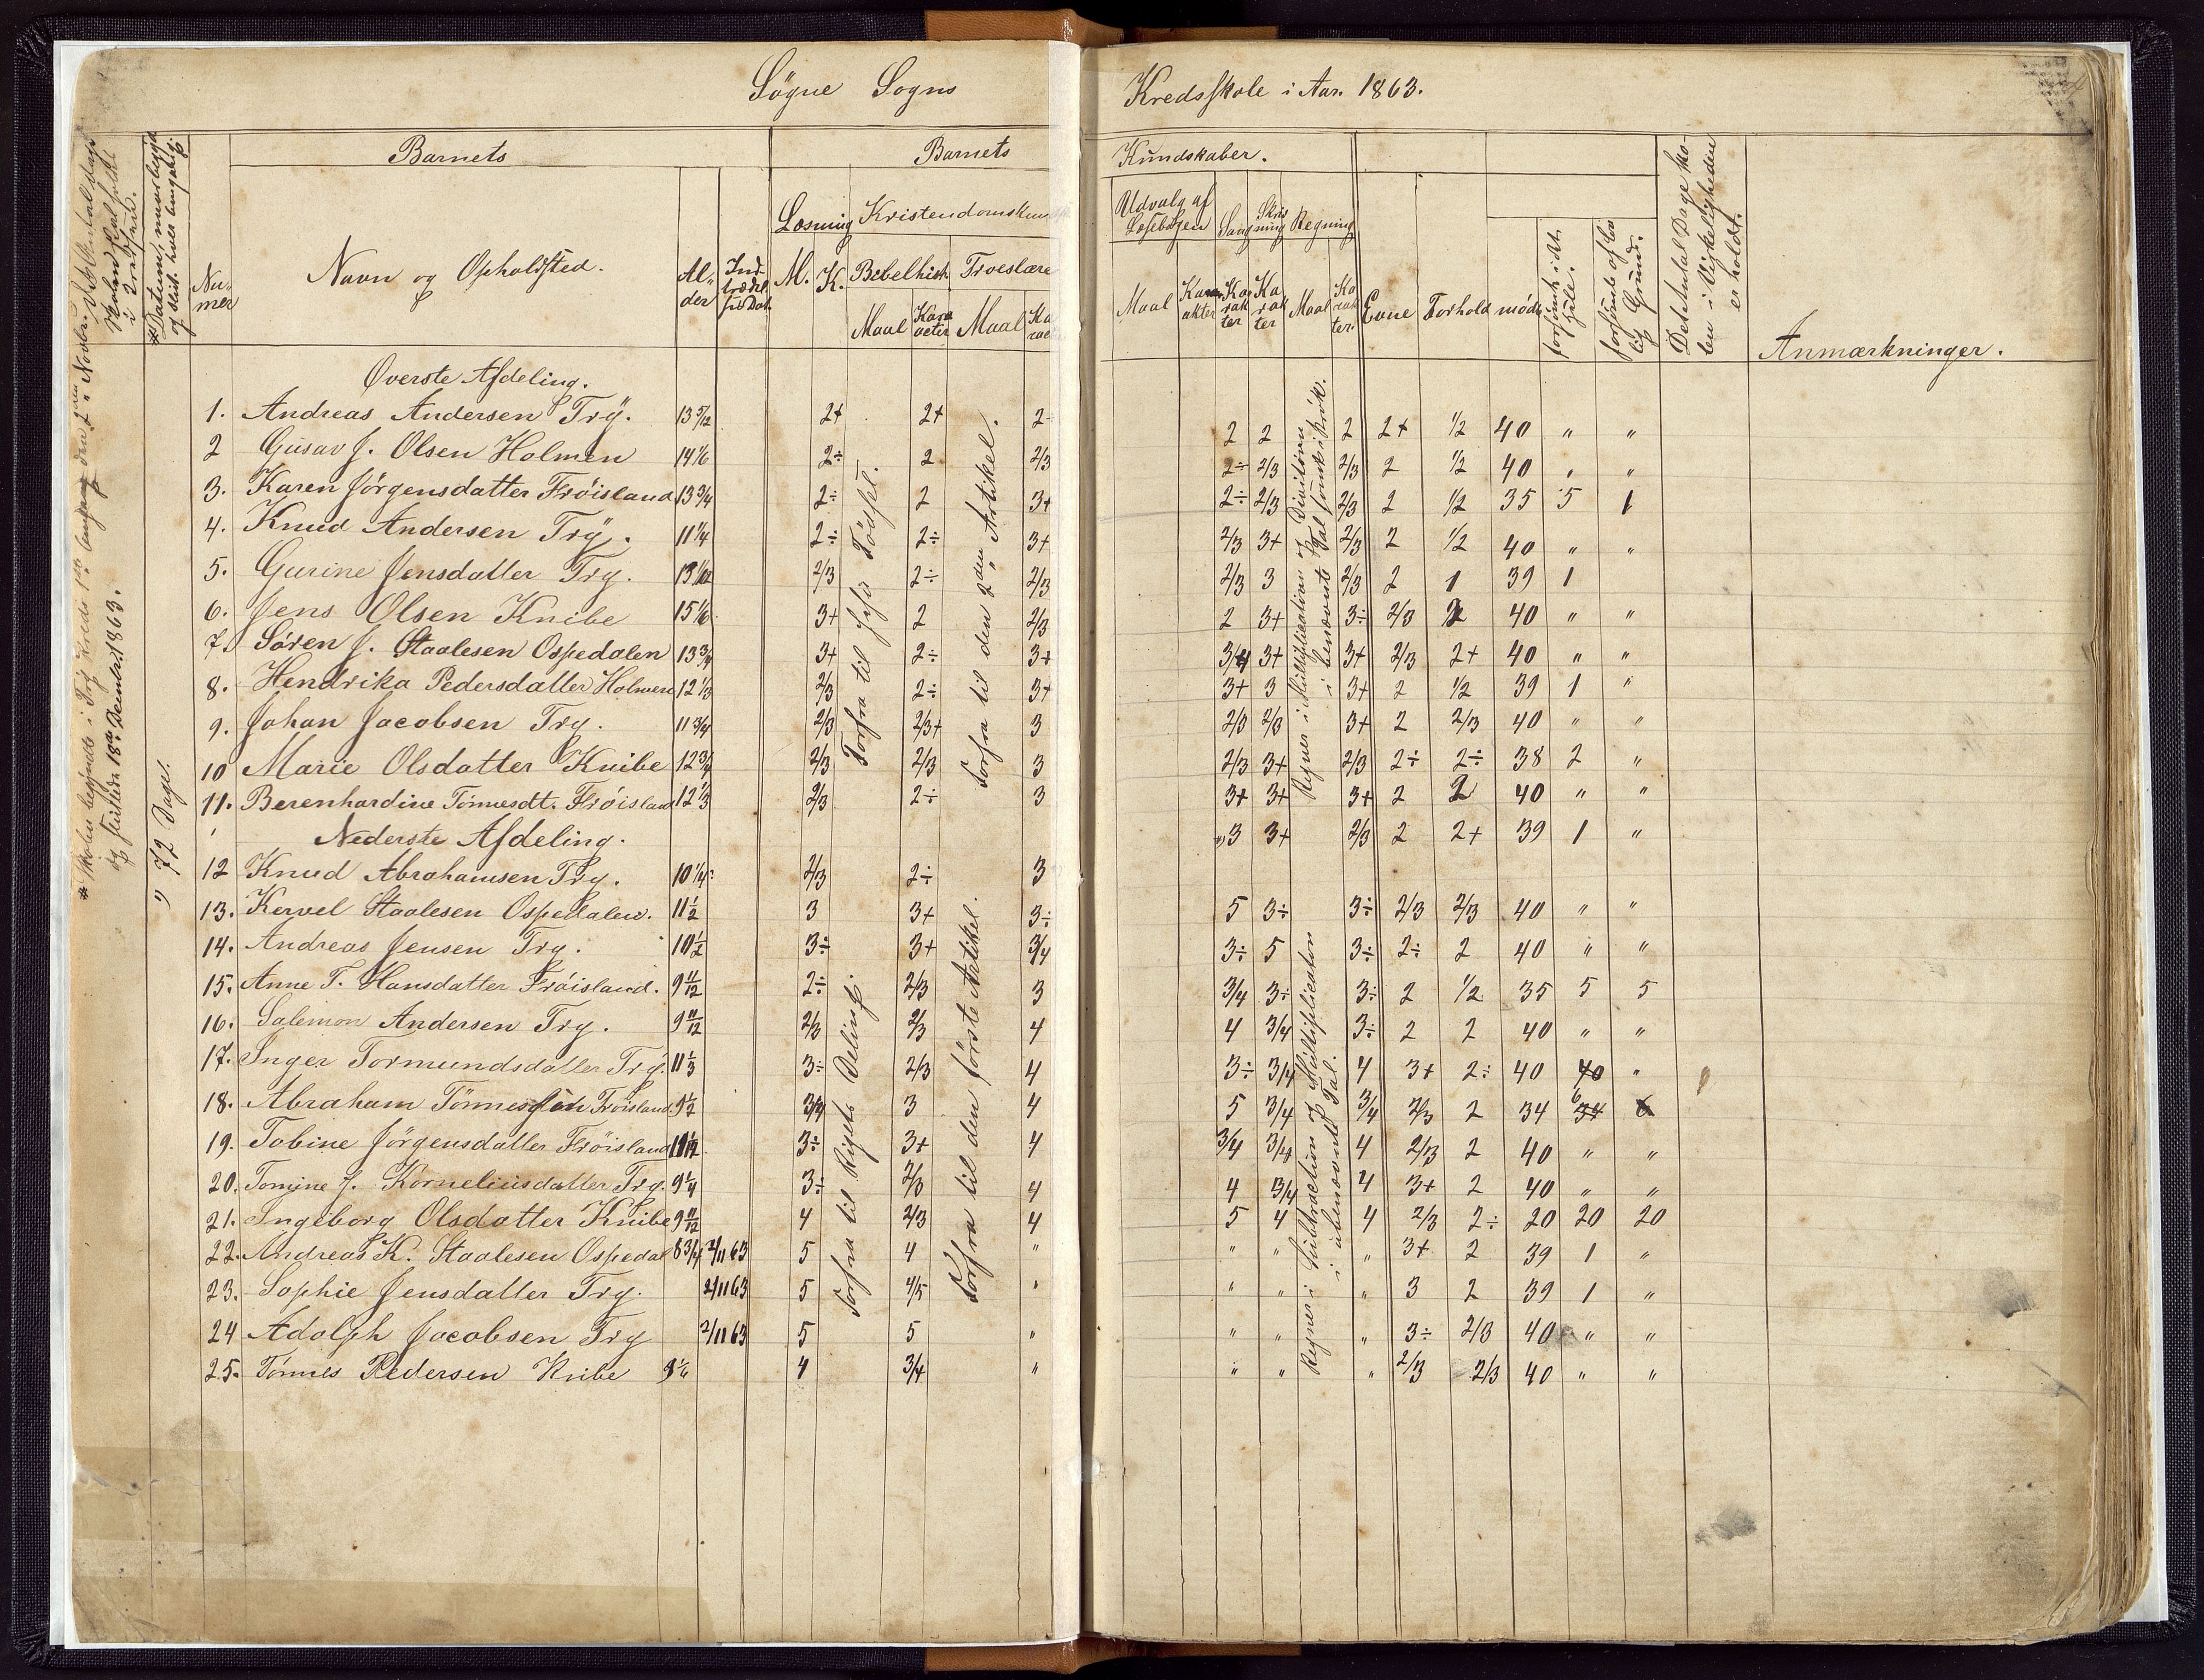 Søgne Sogns
Kredsskole i Aar. 1863.
Barnets
Barnets
Kundskaber.
Det Antal Dage Skolen skal holdes i Kredsen.
Datum, naar
Nu-mer
Navn og Opholdssted.
Al-der
Ind-trædelses Dat.
Læsning
Kristendomskun
M. K. Bibelhist. Troeslære
Maal Karacter Maal Karac
Udvalg af Læsebogen
Sang
Skrivning
Regning
Maal Karakter Karakter Karakter Maal Karakter
Evne Forhold mødt
forsømt i det Hele.
forsømt af lovlig Grund.
Det Antal Dage Skolen i Virkeligheden er holdt.
Anmærkninger.
* Skolen begyndte i Try Kreds den 2den Novbr.
og sluttede 18de Decembr 1863.
72 Dage.
Øverste Afdeling.
1. Andreas Andersen Trÿ. 13 5/12 2+ 2+ 2÷ 2 2 2 2+ 1/2 40 " "
2 Gusav J. Olsen Holmen 14 1/6 2÷ 2 2/3 2÷ 2/3 2/3 2 1/2 40 " "
3. Karen Jörgensdatter Fröisland 13 3/4 2÷ 2 3+ 2÷ 2/3 2/3 2 1/2 35 5 1
4. Knud Andersen Trÿ. 11 1/4 2÷ 2÷ 3+ 2/3 3+ 2/3 2 1/2 40 " "
5. Gurine Jensdatter Try. 2/3 2÷ 2/3 2/3 3 2/3 2 1 39 1
6. Jens Olsen Knibe 15 1/6 3+ 2 2/3 2 3+ 3÷ 2/3 2 40 " "
7. Sören J. Staalesen Ospedalen 13 3/4 3+ 2÷ 3+ 3/4 3+ 3+ 2/3 2+ 40 " "
8. Hendrika Pedersdatter Holmen 12 1/3 2/3 2÷ 3+ 3+ 3 3+ 2 1/2 39 1 "
9. Johan Jacobsen Try. 11 3/4 2/3 2/3+ 3 2/3 2/3 3+ 2 2/3 40 " "
10 Marie Olsdatter Knibe 12 3/4 2/3 2/3 3 2/3 3+ 2/3 2÷ 2÷ 38 2 "
11. Berenhardine Tönnesdt. Fröisland 12 1/3 2/3 2÷ 3 3+ 3+ 3+ 2 2 40 " "
Forfra til Jesu Födsel.
Forfra til den 2den Artikel.
Regner i Multiplication og Division i benævnte Tal
Nederste Afdeling.
12 Knud Abrahamsen Try. 10 1/4 2/3 2÷ 3 3 3+ 2/3 2 2+ 39 1 "
13. Kervel Staalesen Ospedalen. 11 1/2 3 3+ 3÷ 5 3÷ 3÷ 2/3 2/3 40 " "
14. Andreas Jensen Try. 10 1/2 3÷ 3+ 3/4 3÷ 5 3÷ 2÷ 2 40 " "
15. Anne T. Hansdatter Fröisland. 9 11/12 2÷ 2/3 3 3/4 3÷ 3÷ 2 1/2 35 5 5
16. Salemon Andersen Try. 9 11/12 2/3 2/3 4 4 3/4 3÷ 2 2 40 " "
17. Inger Tormundsdatter Try. 11 1/3 3÷ 2/3 4 3÷ 3/4 4 3+ 2÷ 40 40 "
18. Abraham Tönnessön Fröisland 9 1/2 3/4 3 4 5 3/4 3/4 2/3 2 34 6 34 6
19. Tobine Jörgensdatter Fröisland 3÷ 3+ 4 3/4 3/4 4 2/3 2 40 " "
20. Tomine J. Korneliusdatter Try. 9 1/4 3÷ 2/3 4 4 3/4 4 3+ 2 40 " "
21. Ingeborg Olsdatter Knibe 9 11/12 4 2/3 4 5 4 4 2/3 2÷ 20 20 20
22. Andreas K. Staalesen Ospedal 8 3/4 2/11 63 5 4 " " " " 3+ 2 39 1 "
23. Sophie Jensdatter Try. 2/11 63 5 4/5 " " " " 3 2 39 1 "
24 Adolph Jacobsen Try 2/11 63 5 5 " " " " 3÷ 2/3 40 " "
25. Tönnes Pedersen Knibe 4 3/4 " " " " 2/3 2/3 40 " "
Forfra til Rigets Deling.
Forfra til den förste Artikel.
Regner i Subtraction og Multiplication i ubenævnte Tal.